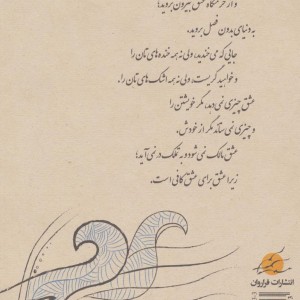 و از خرمنگاه عشق بیرون بروید؛
به دنیای بدون فصل بروید.
جایی که می‌خندید، ولی نه همه خنده‌های تان را،
و خواهید گریست، ولی نه همه اشک‌های تان را.
عشق چیزی نمی‌دهد، مگر خویشتن را
و چیزی نمی‌ستاند مگر از خودش.
عشق مالک نمی‌شود و به تملک در نمی‌آید؛
زیرا عشق برای عشق کافی است.
انتشارات فراروان